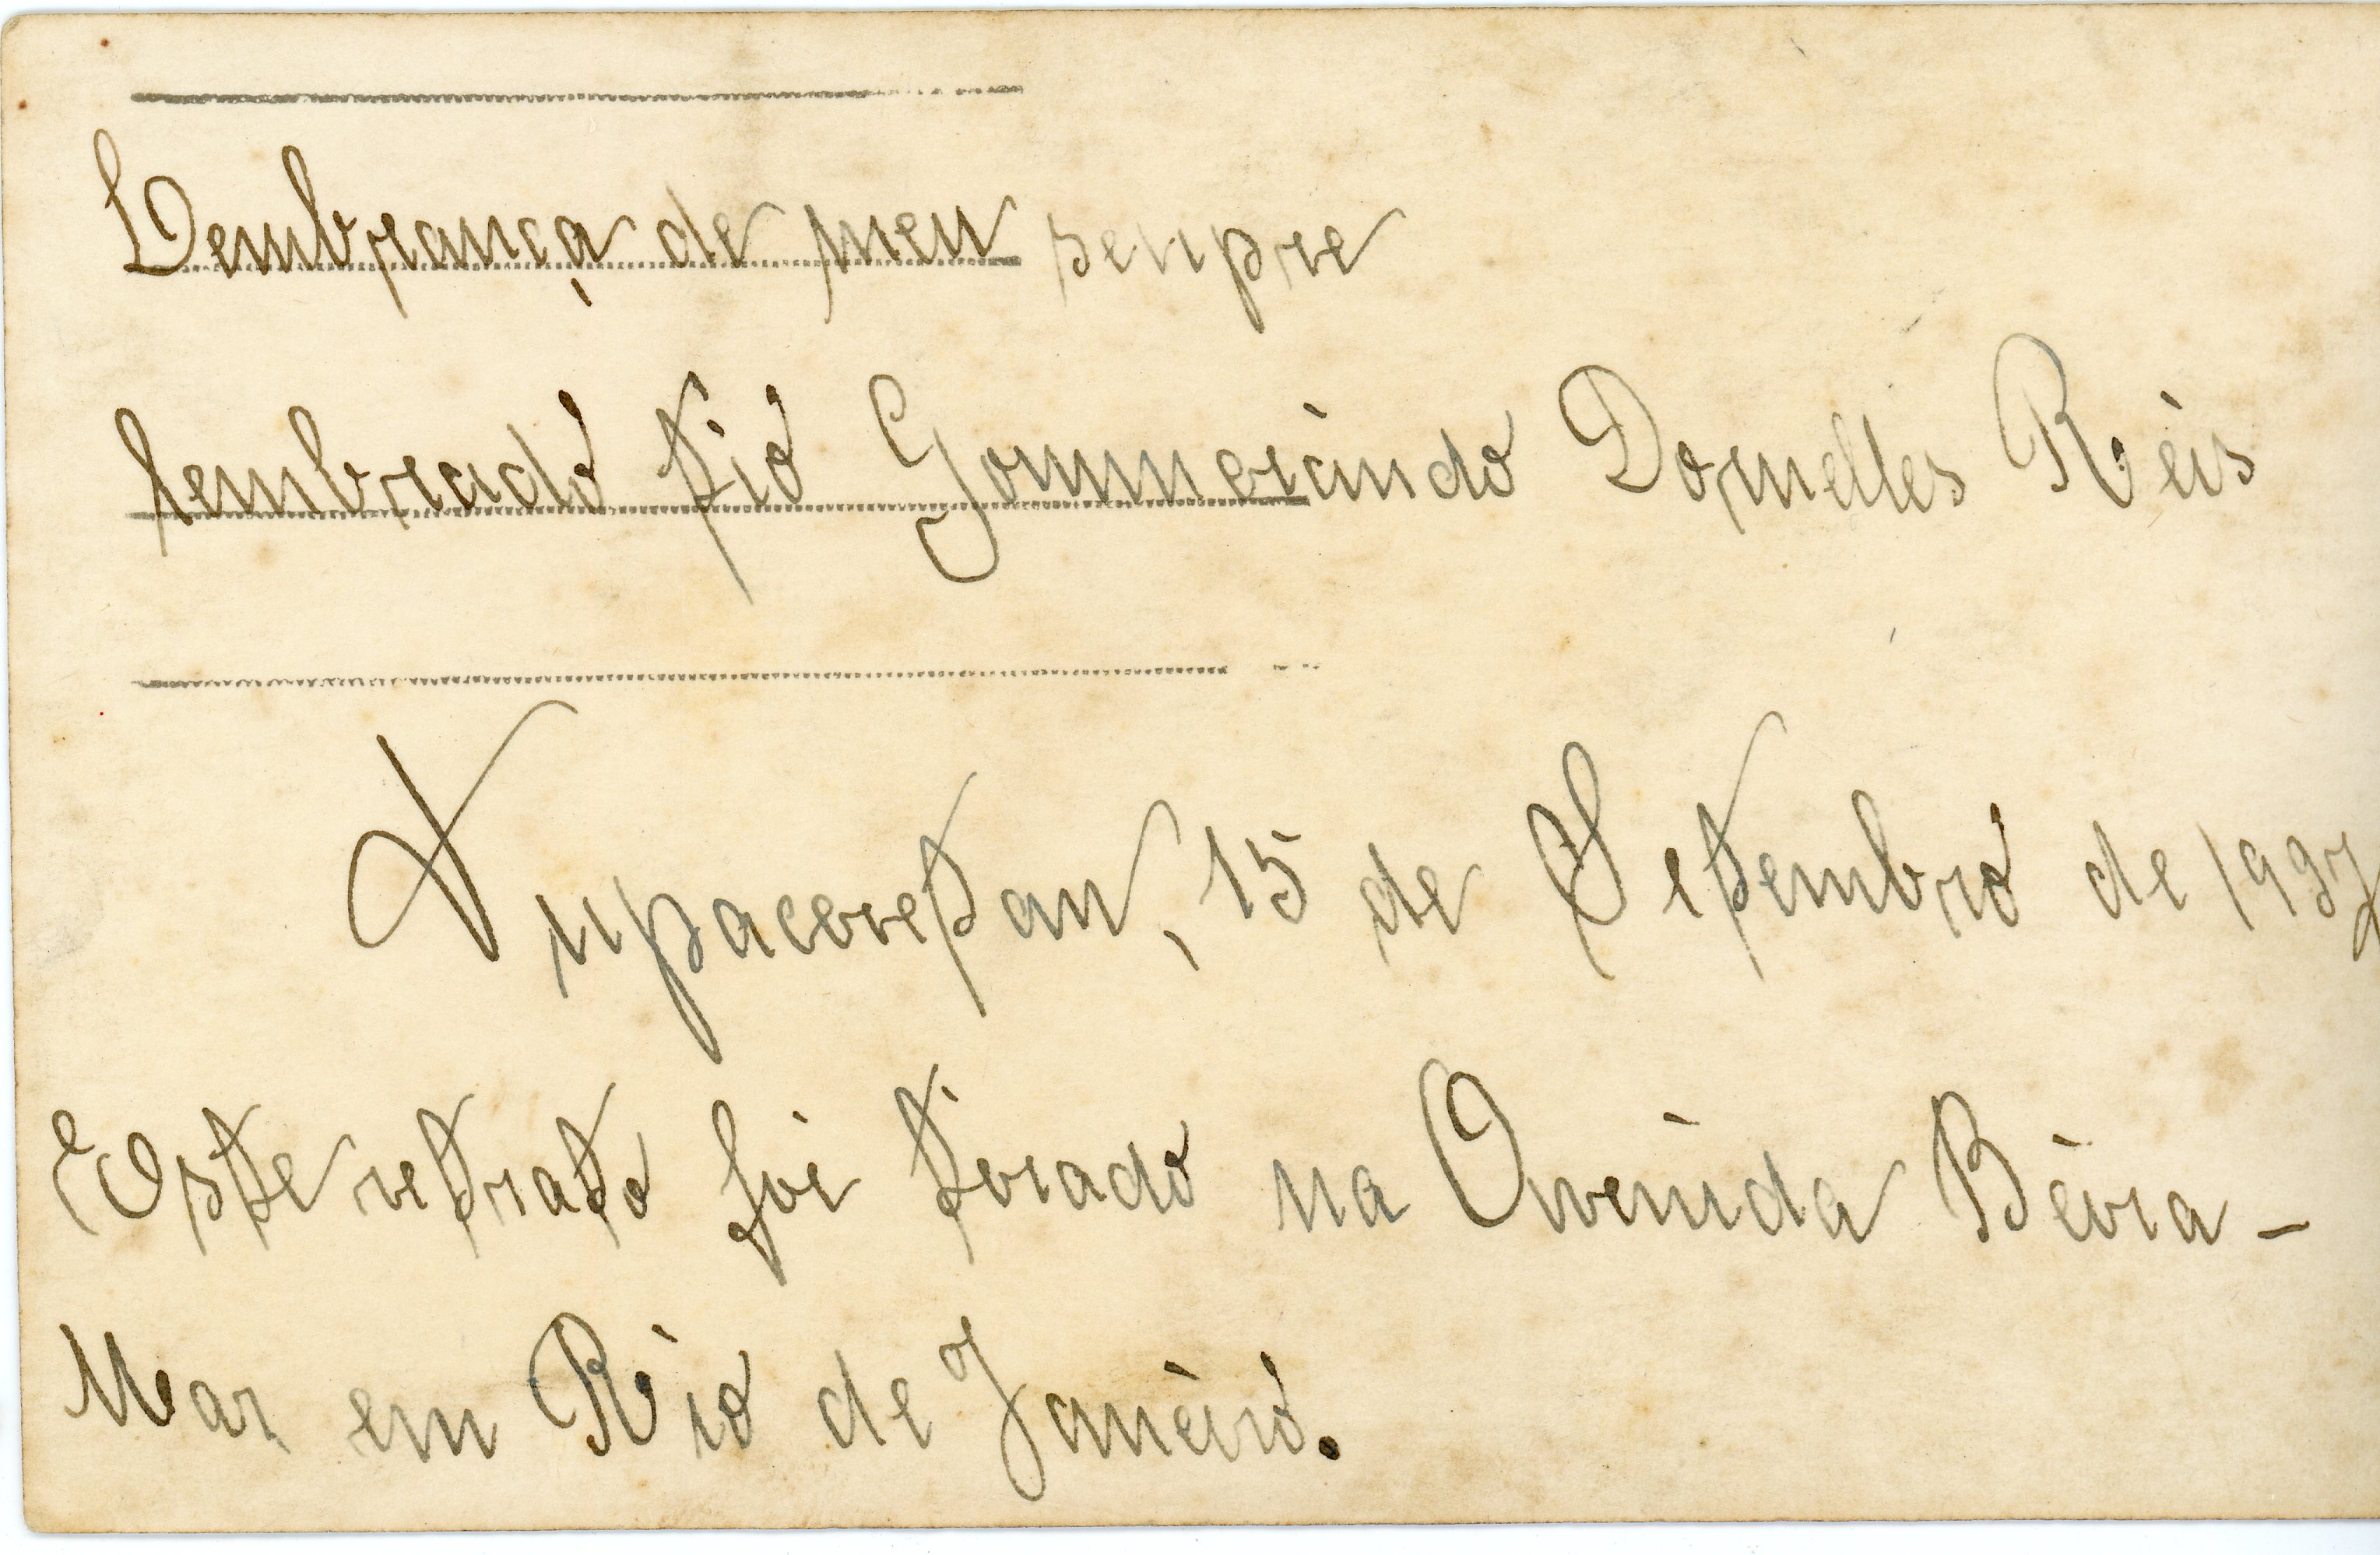 Lembrança de meu senpre
lembrado tio Gommercindo Dornelles Reis
Tupaceretan, 15 de Setembro de 1937
Este retrato foi tirado na Avenida Beira-
Mar em Rio de Janeiro.